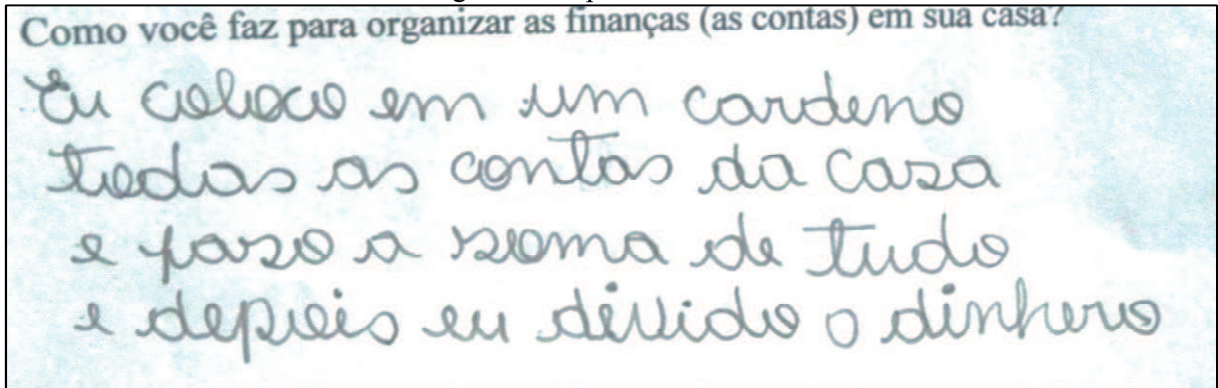 Como você faz para organizar as finanças (as contas) em sua casa?
Eu coloco em um cardeno
todas as contas da casa
e faso a soma de tudo
e depois eu divido o dinhero